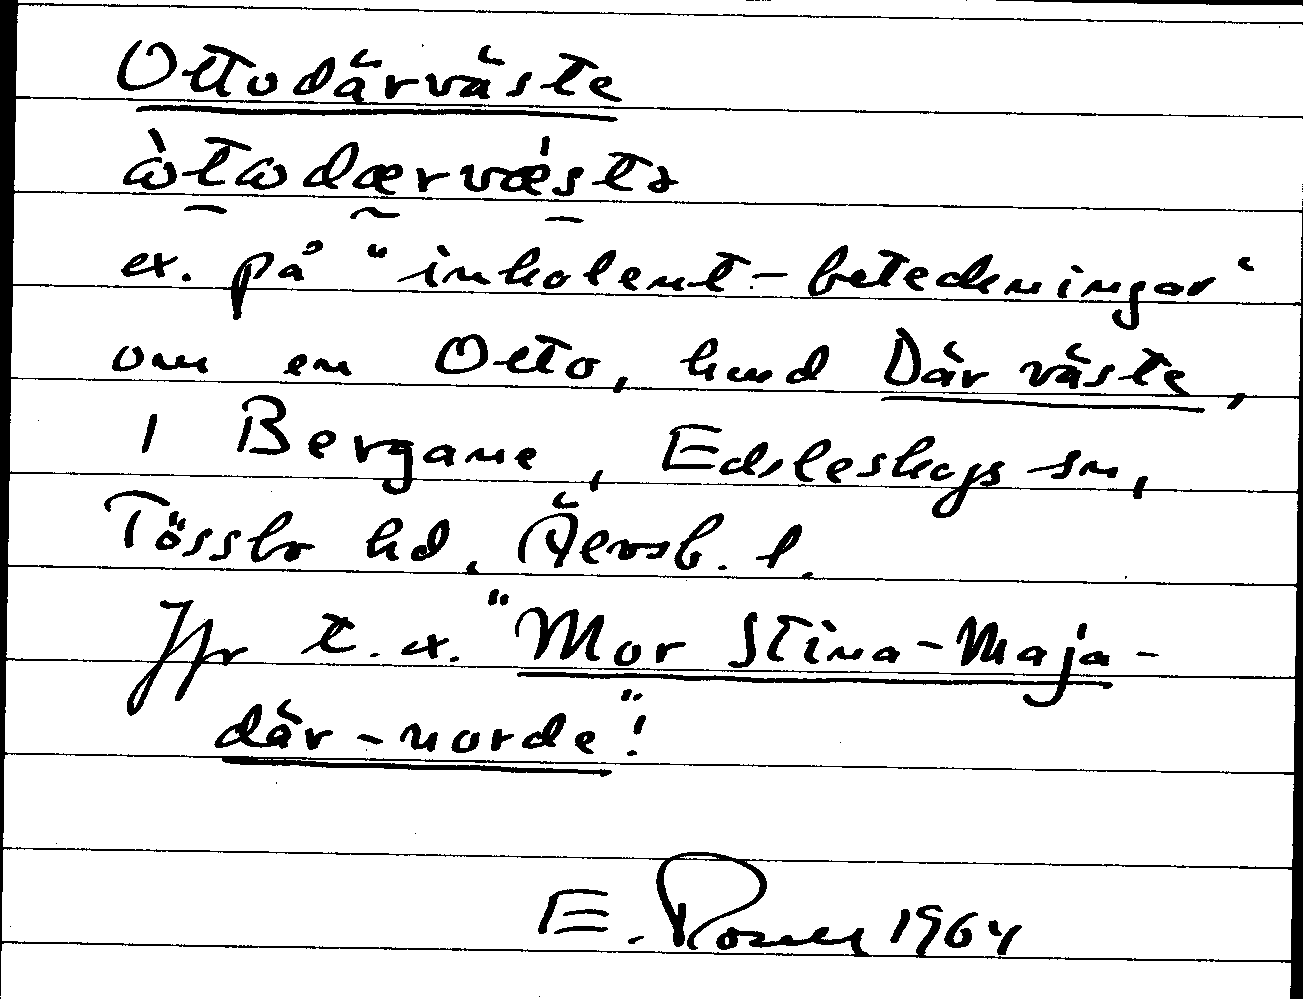 Ottodärväste
òtodærvǽstə
ex. på "inkolent-beteckningar"
om en Otto, hmd Där väste,
i Bergane, Edsleskogs sn,
Tössbo hd, Älvsb. l.
Jfr t.ex. "Mor Stina-Maja-
där-norde"!
E. 1964